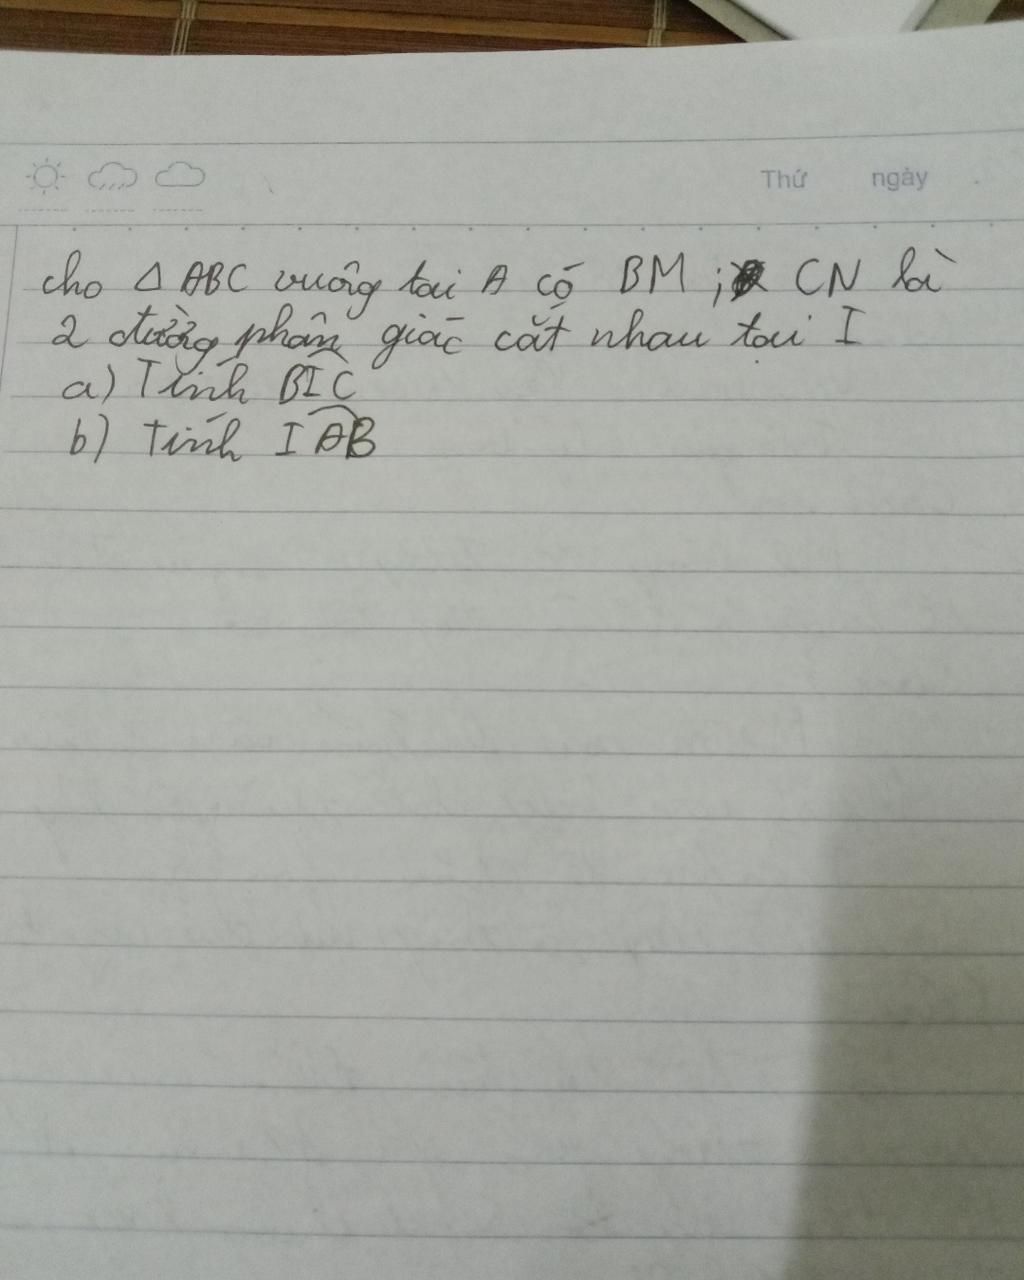 Thứ ngày
cho Δ ABC vuông tại A có BM ; CN là
2 đường phân giác cắt nhau tại I
a) Tính BIC
b) Tính IAB